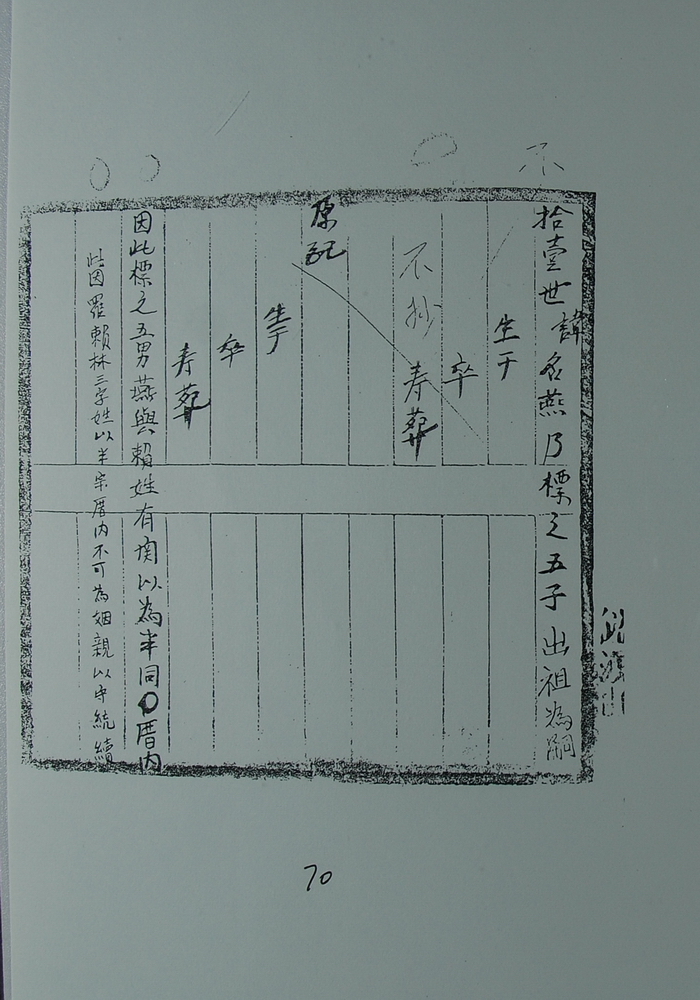 不
拾壹世諱名燕乃標之五子出祖為嗣
生于
卒
不抄 寿葬
原配
生于
卒
寿葬
因此標之五男燕與賴姓有関以為半同 厝内
此因羅賴林三字姓以半宗厝内不可為姻親以守統續
70